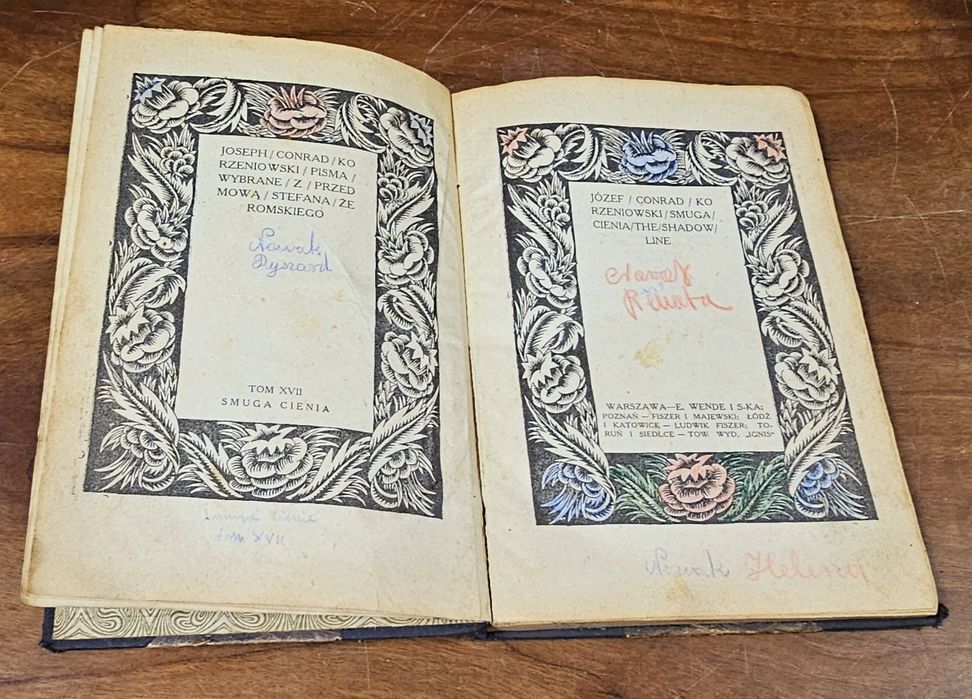 JOSEPH / CONRAD / KO
RZENIOWSKI / PISMA /
WYBRANE / Z / PRZED
MOWĄ / STEFANA / ŻE
ROMSKIEGO
Nowak
Ryszard
TOM XVII
SMUGA CIENIA
Smuga Cienia
tom XVII
JÓZEF / CONRAD / KO
RZENIOWSKI / SMUGA /
CIENIA / THE / SHADOW /
LINE
Renata
WARSZAWA — E. WENDE I S-KA;
POZNAŃ — FISZER I MAJEWSKI; ŁÓDŹ
I KATOWICE — LUDWIK FISZER; TO-
RUŃ I SIEDLCE — TOW. WYD. „IGNIS"
Nowak Helena